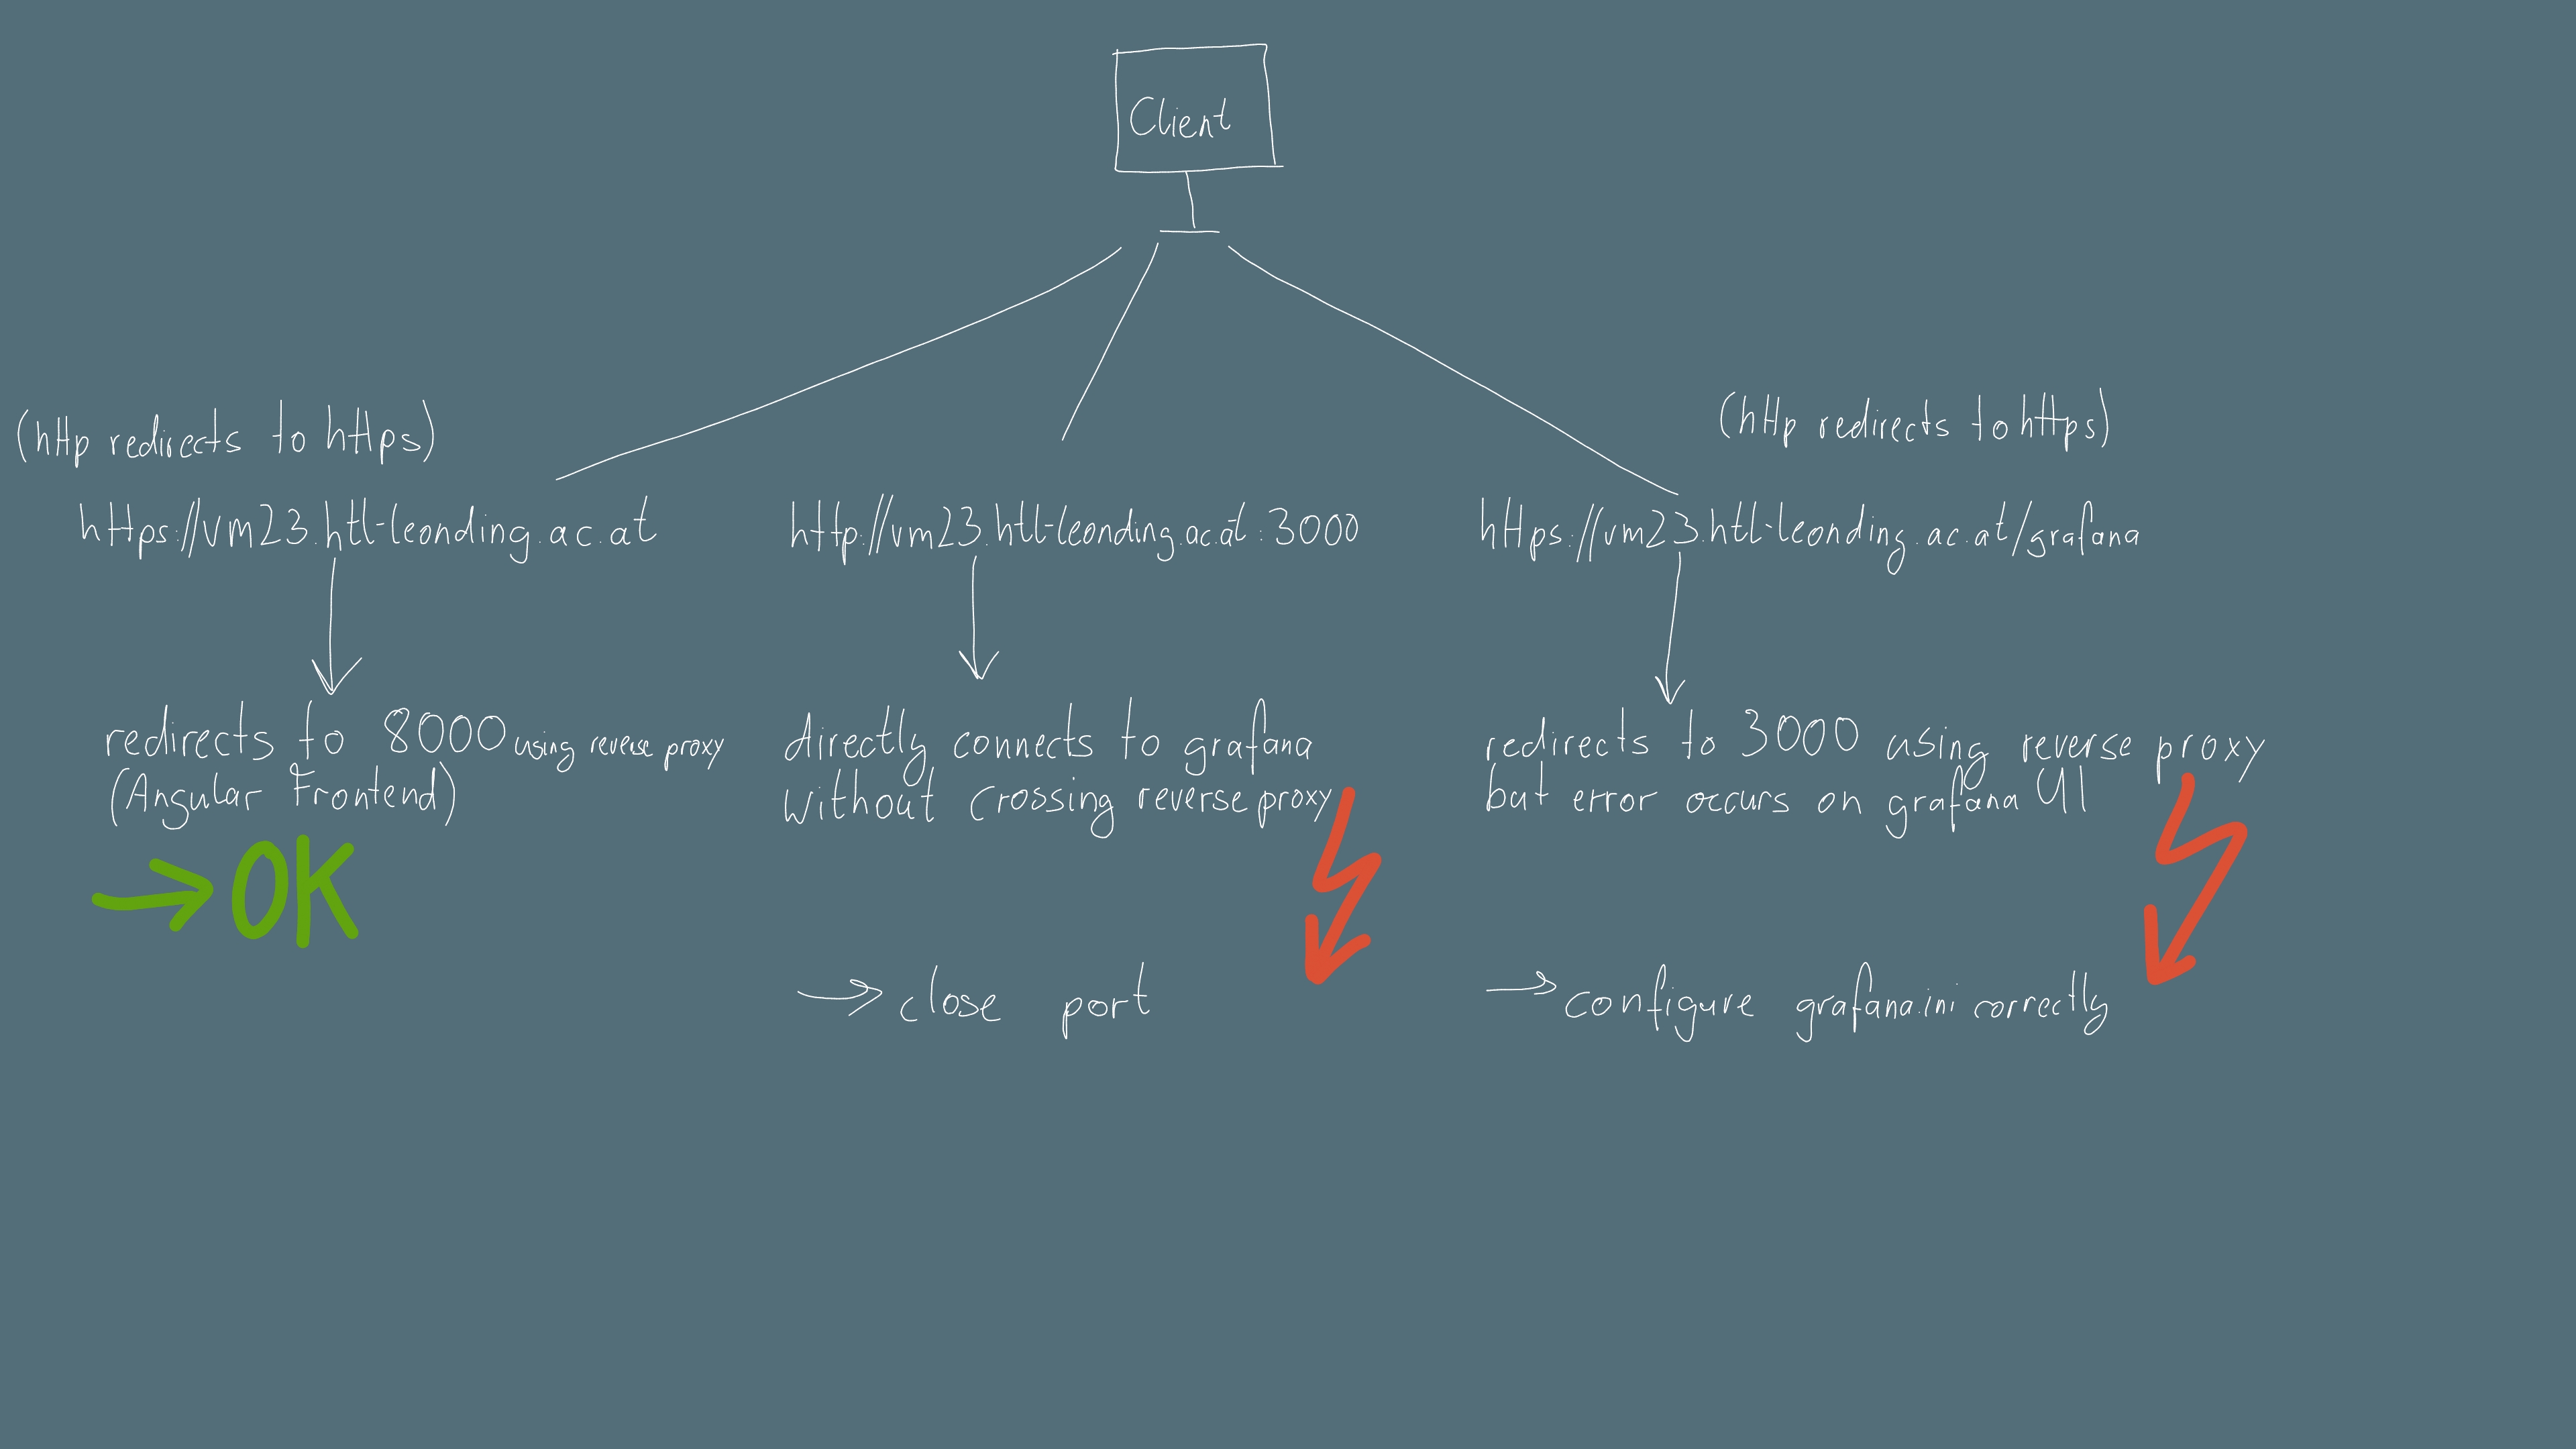 Client
(http redirects to https)
https://vm23.htl-leonding.ac.at
redirects to 8000 using reverse proxy
(Angular Frontend)
→ OK
http://vm23.htl-leonding.ac.at:3000
directly connects to grafana
without crossing reverse proxy
→ close port
(http redirects to https)
https://vm23.htl-leonding.ac.at/grafana
redirects to 3000 using reverse proxy
but error occurs on grafana UI
→ configure grafana.ini correctly